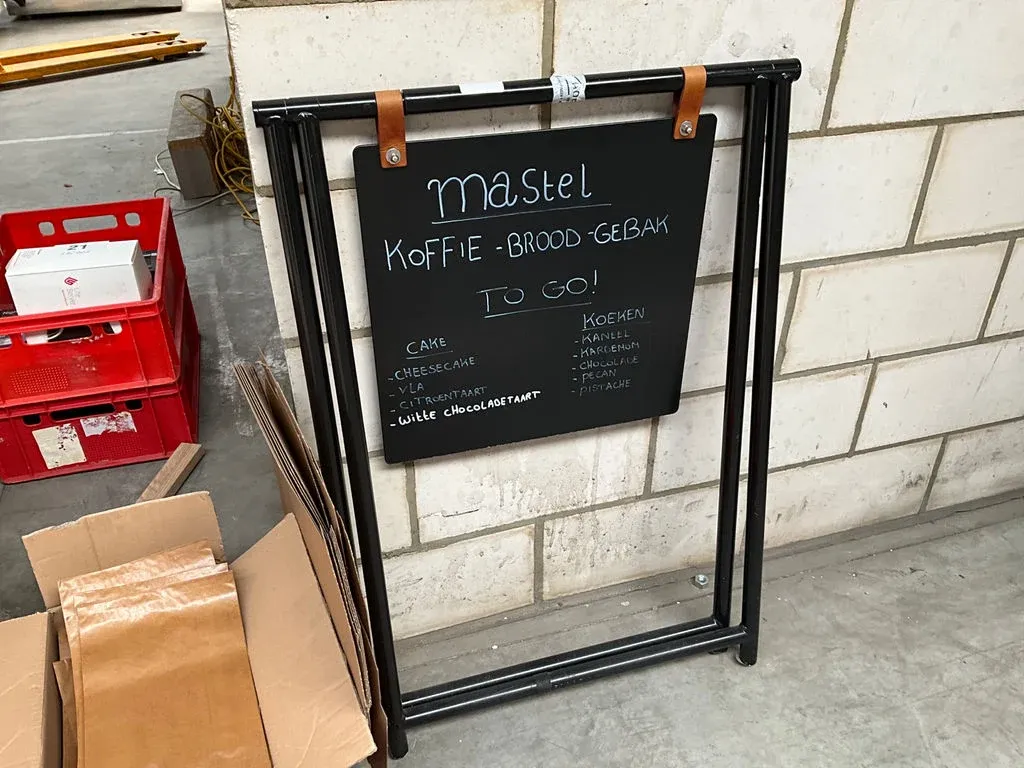 mastel
KOFFIE - BROOD - GEBAK
TO GO!
CAKE
- CHEESECAKE
- VLA
- CITROENTAART
- WITTE CHOCOLADETAART
KOEKEN
- KANEEL
- KARDEMOM
- CHOCOLADE
- PECAN
- PISTACHE
21